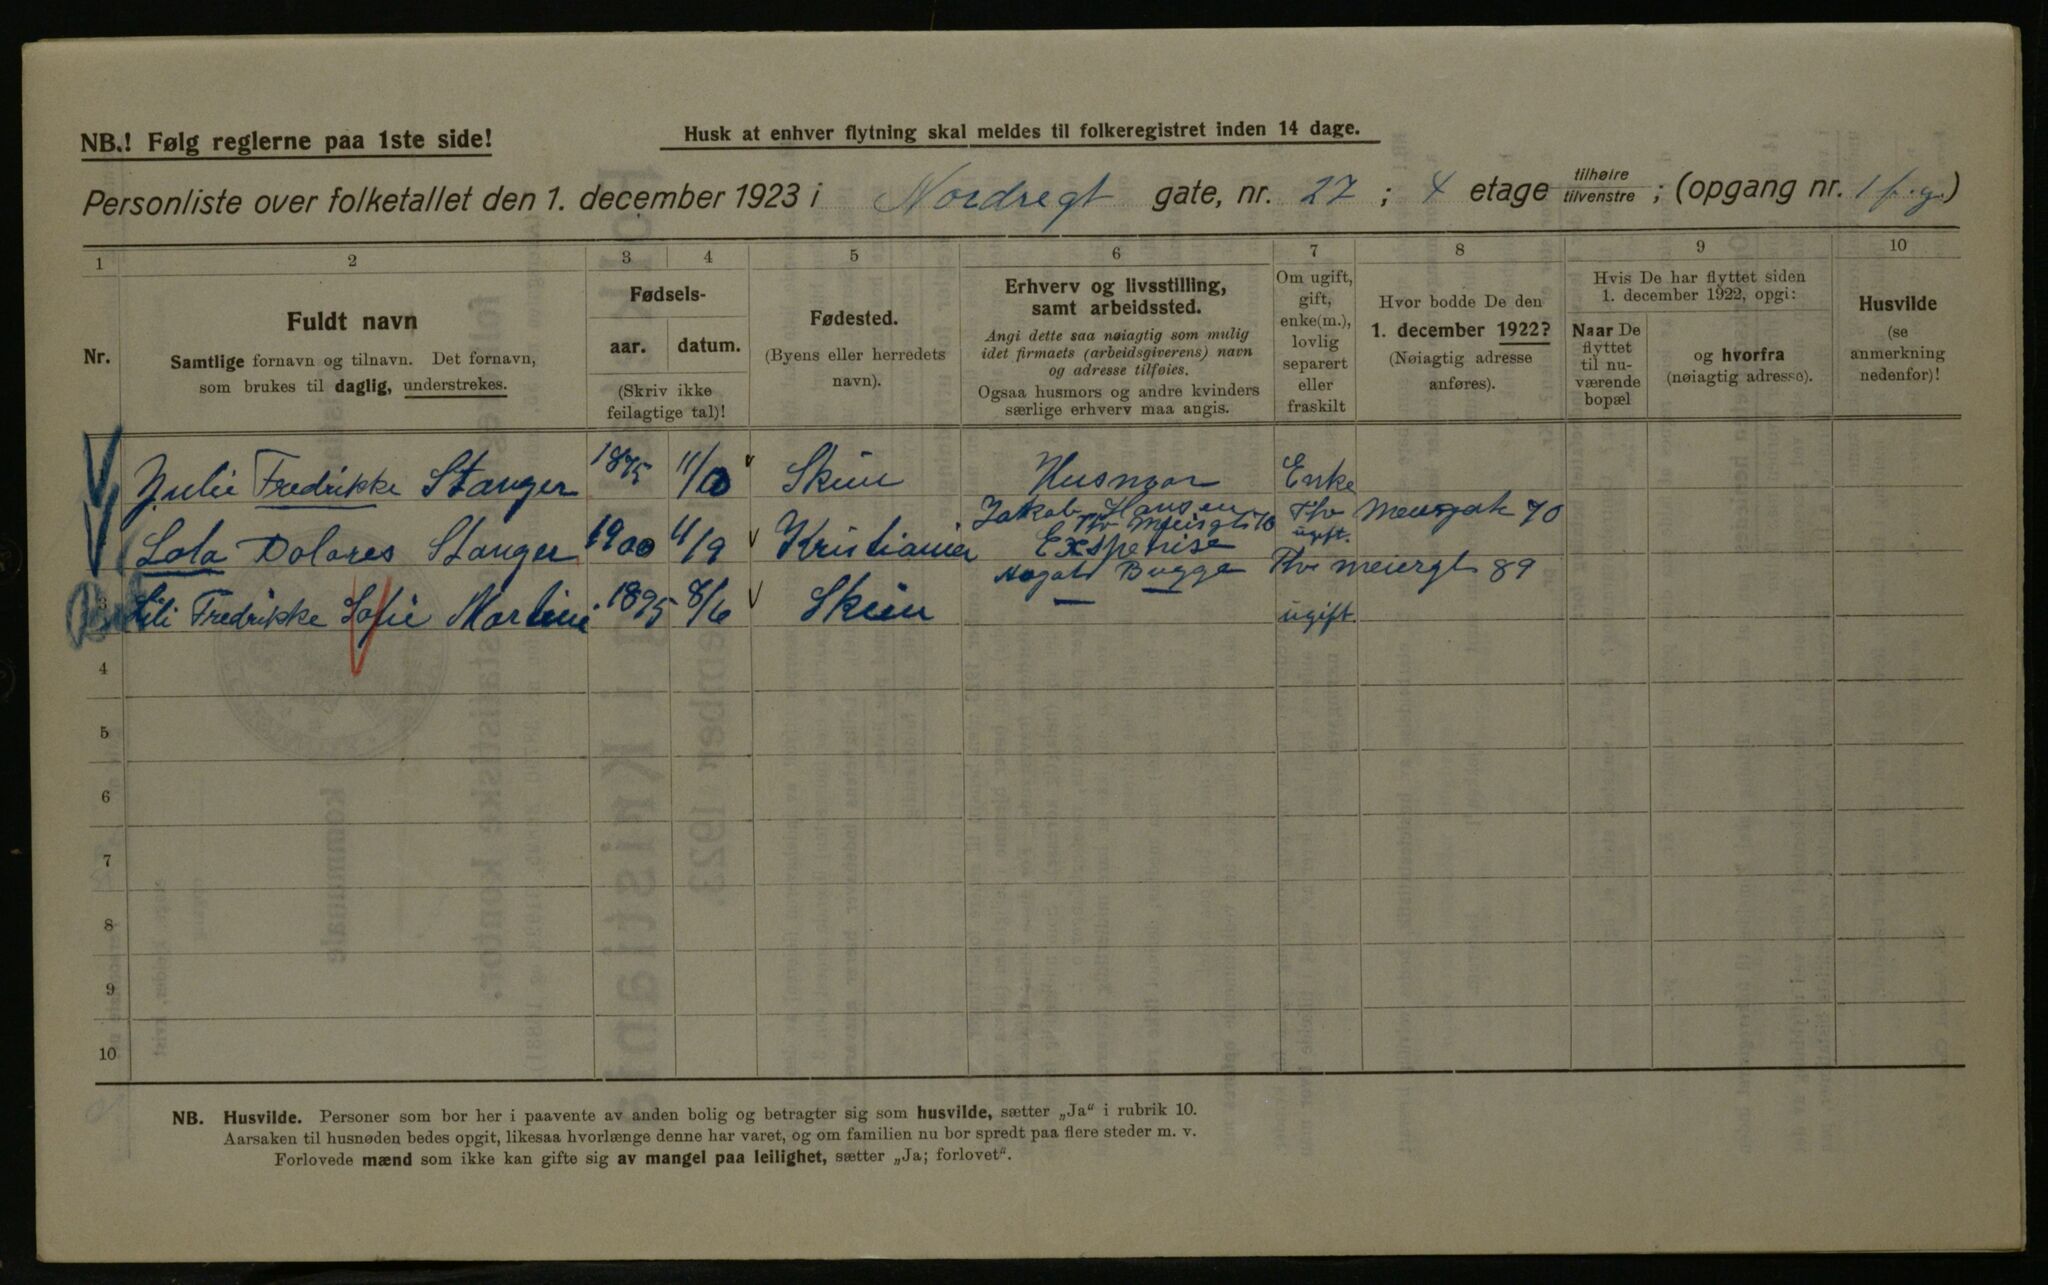 NB.! Følg reglerne paa 1ste side!
Husk at enhver flytning skal meldes til folkeregistret inden 14 dage.
Personliste over folketallet den 1. december 1923 i Nordregt gate, nr. 27 ; 4 etage tilhøire tilvenstre ; (opgang nr. 1 f. g.)
1 2 3 4 5 6 7 8 9 10
Nr.
Fuldt navn
Samtlige fornavn og tilnavn. Det fornavn,
som brukes til daglig, understrekes.
Fødsels-
aar. datum.
(Skriv ikke
feilagtige tal)!
Fødested.
(Byens eller herredets
navn).
Erhverv og livsstilling,
samt arbeidssted.
Angi dette saa nøiagtig som mulig
idet firmaets (arbeidsgiverens) navn
og adresse tilføies.
Ogsaa husmors og andre kvinders
særlige erhverv maa angis.
Om ugift,
gift,
enke(m.),
lovlig
separert
eller
fraskilt
Hvor bodde De den
1. december 1922?
(Nøiagtig adresse
anføres).
Hvis De har flyttet siden
1. december 1922, opgi:
Naar De
flyttet
til nu-
værende
bopæl
og hvorfra
(nøiagtig adresse).
Husvilde
(se
anmerkning
nedenfor)!
Julie Fredrikke Stanger 1875 11/10 Skien Husmor Enke
Jakob Hansen
Lola Dolores Stanger 1900 11/9 Kristiania ugift.
70
Bugge 89
Lili Fredrikke Sofie Martine 1895 8/6 Skien — — ugift.
4
5
6
7
8
9
10
NB. Husvilde. Personer som bor her i paavente av anden bolig og betragter sig som husvilde, sætter „Ja“ i rubrik 10.
Aarsaken til husnøden bedes opgit, likesaa hvorlænge denne har varet, og om familien nu bor spredt paa flere steder m. v.
Forlovede mænd som ikke kan gifte sig av mangel paa leilighet, sætter „Ja; forlovet“.